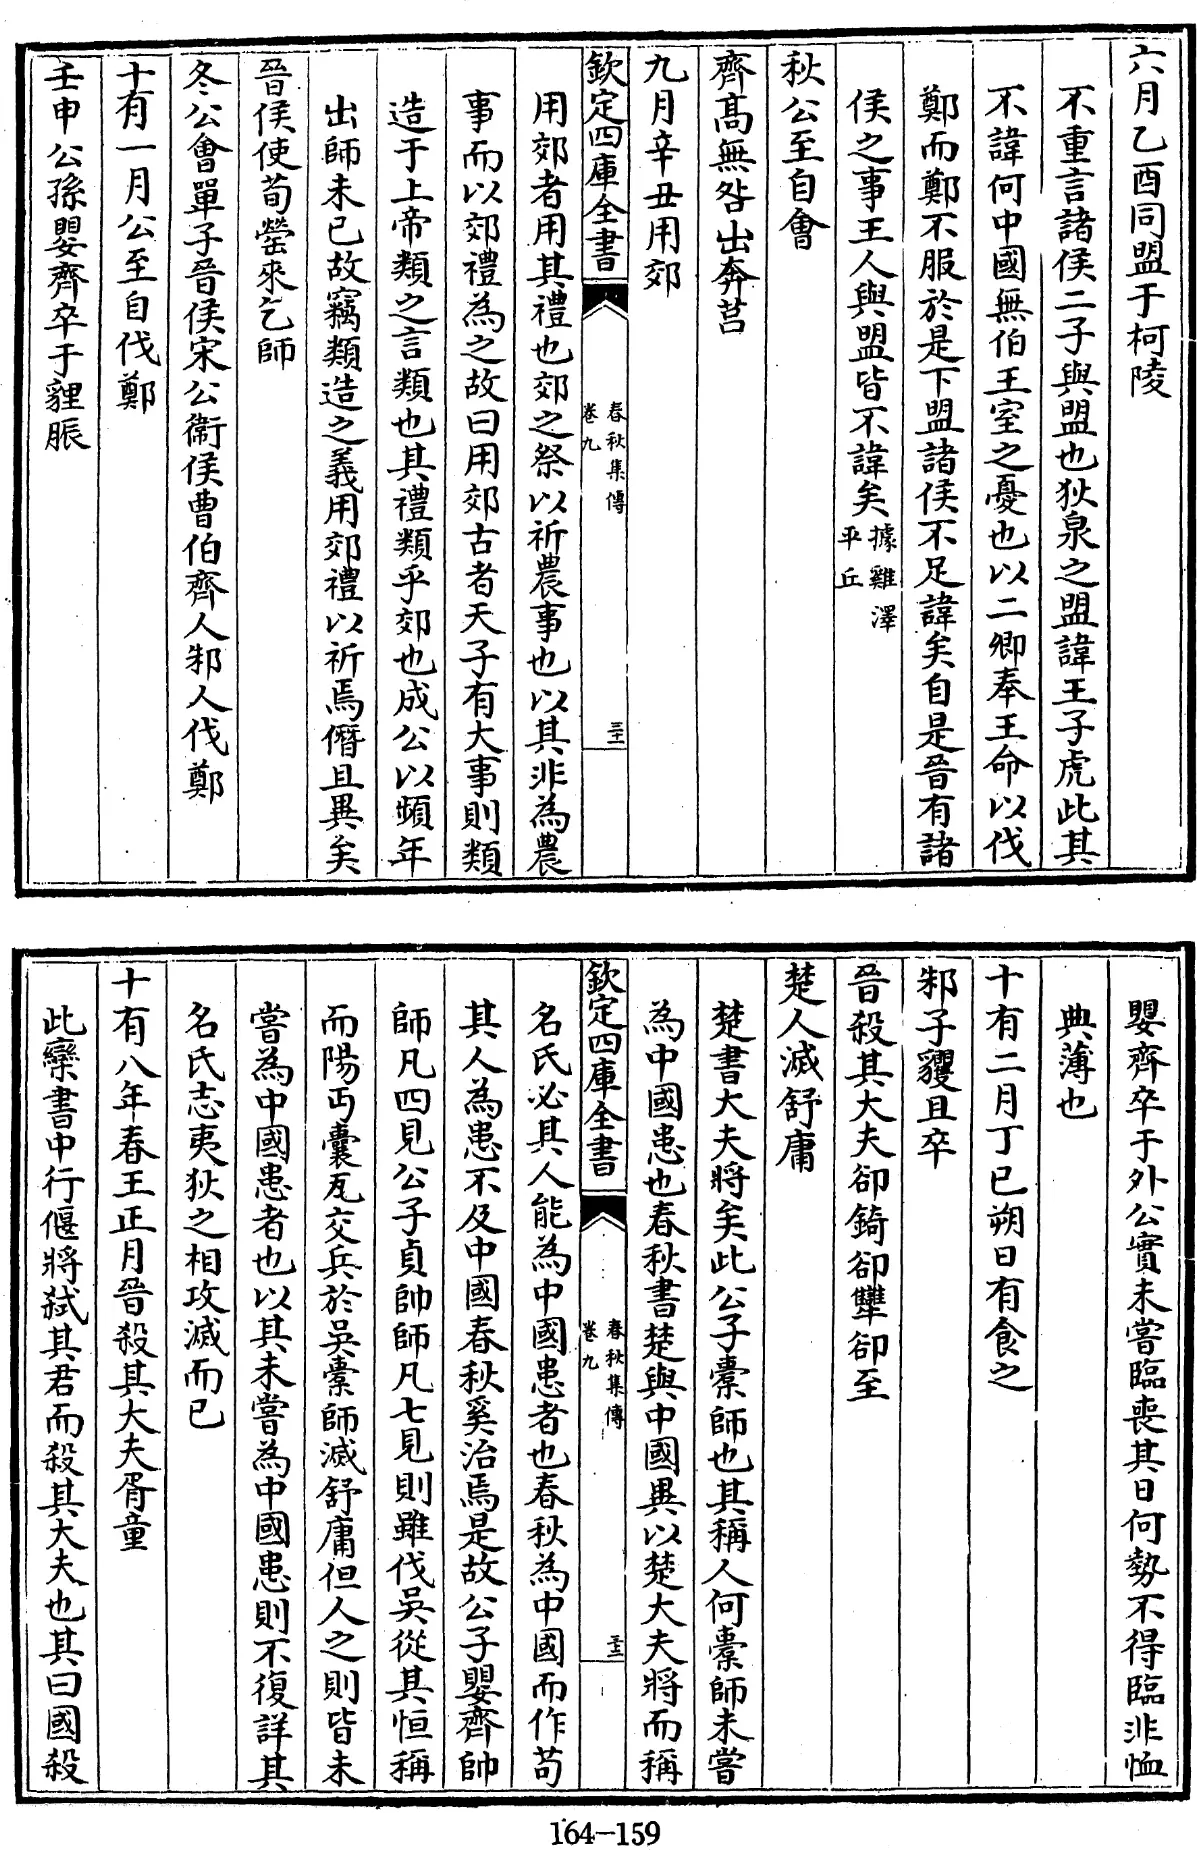 六月乙酉同盟于柯陵
不重言諸侯二子與盟也狄泉之盟諱王子虎此其
不諱何中國無伯王室之憂也以二卿奉王命以伐
鄭而鄭不服於是下盟諸侯不足諱矣自是晉有諸
侯之事王人與盟皆不諱矣據雞澤平丘
秋公至自會
齊高無咎出奔莒
九月辛丑用郊
欽定四庫全書 春秋集傳 卷九 三十二
用郊者用其禮也郊之祭以祈農事也以其非為農
事而以郊禮為之故曰用郊古者天子有大事則類
造于上帝類之言類也其禮類乎郊也成公以頻年
出師未已故竊類造之義用郊禮以祈焉僭且異矣
晉侯使荀罃來乞師
冬公會單子晉侯宋公衞侯曹伯齊人邾人伐鄭
十有一月公至自伐鄭
壬申公孫嬰齊卒于貍脤
嬰齊卒于外公實未嘗臨喪其日何勢不得臨非恤
典薄也
十有二月丁巳朔日有食之
邾子貜且卒
晉殺其大夫卻錡卻犨卻至
楚人滅舒庸
楚書大夫將矣此公子橐師也其稱人何橐師未嘗
為中國患也春秋書楚與中國異以楚大夫將而稱
欽定四庫全書 春秋集傳 卷九 三十三
名氏必其人能為中國患者也春秋為中國而作苟
其人為患不及中國春秋奚治焉是故公子嬰齊帥
師凡四見公子貞帥師凡七見則雖伐吳從其恒稱
而陽丐囊瓦交兵於吳橐師滅舒庸但人之則皆未
嘗為中國患者也以其未嘗為中國患則不復詳其
名氏志夷狄之相攻滅而已
十有八年春王正月晉殺其大夫胥童
此欒書中行偃將弑其君而殺其大夫也其曰國殺
164-159